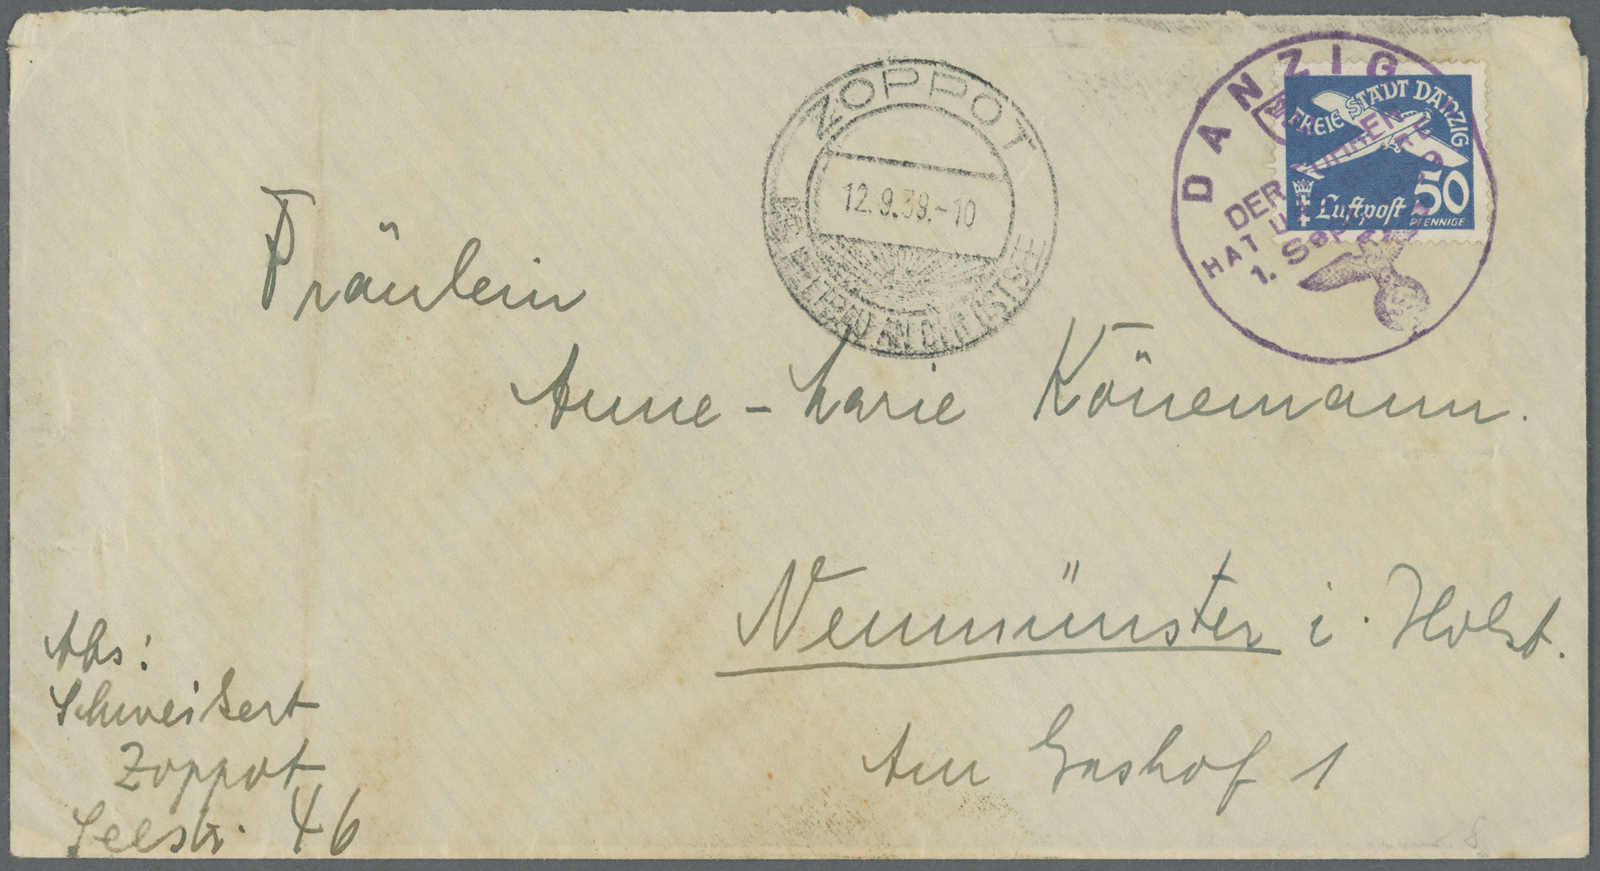 ZOPPOT
12.9.39.-10
AN DER OSTSEE
DANZIG
DER
HAT
1. Sept
FREIE STADT DANZIG
Luftpost 50
PFENNIGE
Fräulein
Anne-Marie Könemann.
Neumünster i. Holst.
Am Gashof 1
Abs:
Schweikert
Zoppot
Seestr. 46